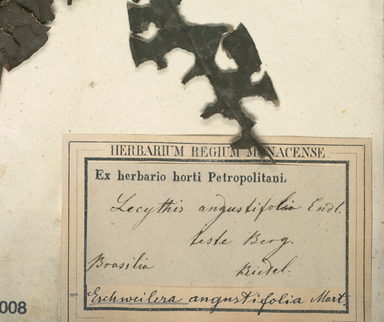 HERBARIUM REGIUM MONACENSE.
Ex herbario horti Petropolitani.
Lecythis angustifolia Endl.
teste Berg.
Brasilia Riedel.
Eschweilera angustifolia Mart.
008